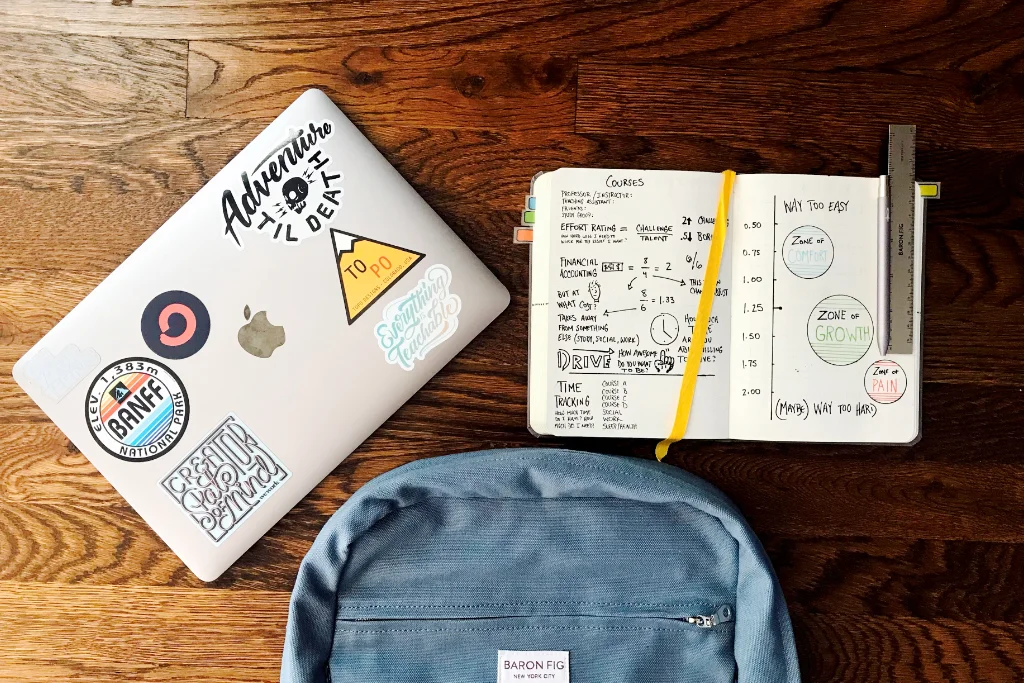 Adventure
'TIL DEATH
TO PO
Everything
is
Teachable
ELEV. 1,383m
BANFF
NATIONAL PARK
CREATOR
State
of Mind
COURSES
PROFESSOR/INSTRUCTOR:
TEACHING ASSISTANT:
FRIENDS:
STUDY GROUP:
EFFORT RATING = CHALLENGE
TALENT
FINANCIAL
ACCOUNTING
= 8/4 = 2
6/6
8/6 = 1.33
BUT AT
WHAT COST?
TAKES AWAY
FROM SOMETHING
ELSE (STUDY, SOCIAL, WORK)
DRIVE
HOW AWESOME
DO YOU WANT
TO BE?
TIME
TRACKING
HOW MUCH TIME
DO I HAVE? HOW
MUCH DO I NEED?
COURSE A
COURSE B
COURSE C
COURSE D
SOCIAL
WORK
WAY TOO EASY
0.50
0.75
1.00
1.25
1.50
1.75
2.00
ZONE OF
COMFORT
ZONE OF
GROWTH
ZONE OF
PAIN
(MAYBE) WAY TOO HARD
BARON FIG
BARON FIG
NEW YORK CITY